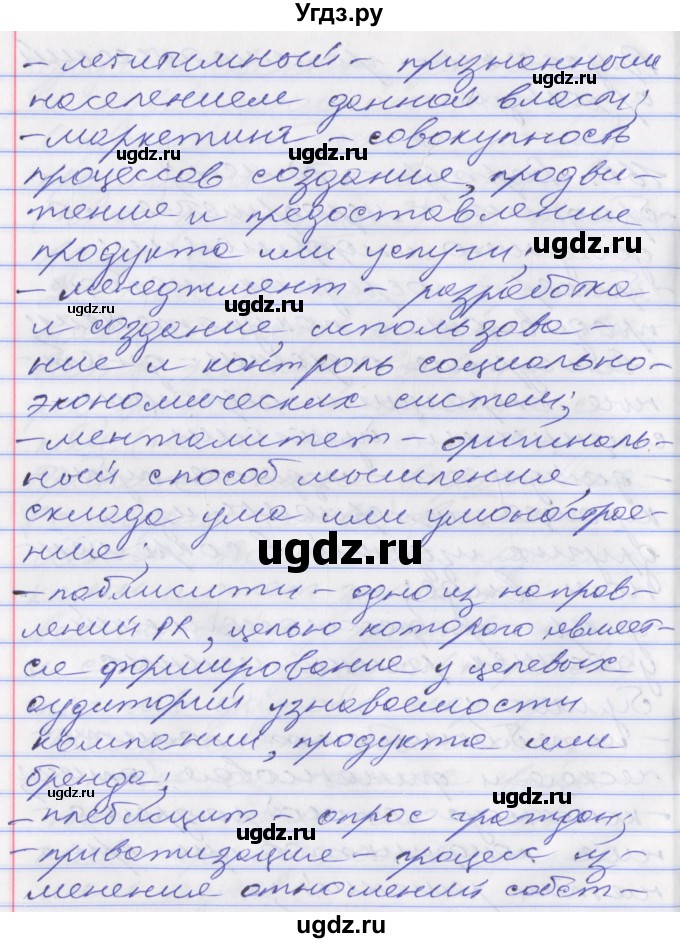 Угдз.ру
- легитимный - признанный
ugdz.ru
населением данной власти;
- маркетинг - совокупность
ugdz.ru
ugdz.ru
процессов создания, продви-
жение и предоставление
продукта или услуги;
ugdz.ru
- менеджмент - разработка
ugdz.ru
и создание, использова-
ние и контроль социально-
экономических систем;
- менталитет - оригиналь-
ный способ мышления,
склада ума или умонастрое-
ние;
ugdz.ru
- паблисити - одно из направ-
лений PR, целью которого являет-
ся формирование у целевых
аудиторий узнаваемости
компании, продукта или
бренда;
ugdz.ru
ugdz.ru
- плебисцит - опрос граждан;
ugdz.ru
- приватизация - процесс из-
ugdz.ru
менения отношений собст-
ugdz.ru